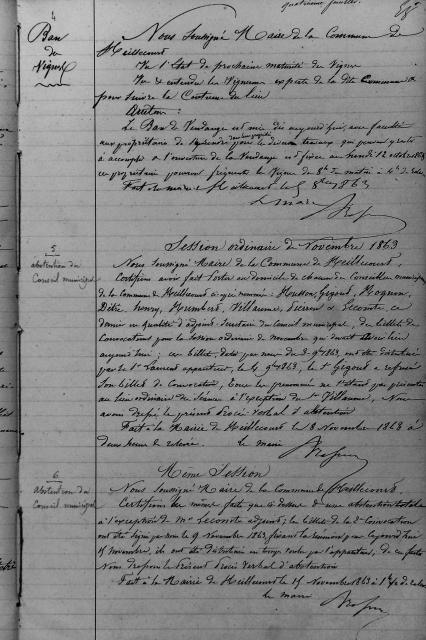 quatrième feuillet
4
Ban
de
Vignes
Nous Soussigné Maire de la Commune de
Heillecourt
Vu l'état de prochaine maturité du Vigne
Vu & entendu les Vignerons experts de la dte Commune &
pour suivre la Coutume du lieu
Arrêtons :
Le Ban de Vendange est mis dès aujourd'hui, avec faculté
aux propriétaires de
à l'ouverture de la Vendange est fixée au lundi 12 octobre 1863
les propriétaires pourront fréquenter les Vignes de 8h du matin à 4h de
Fait en mairie à Heillecourt le 8bre 1863
Le maire
5
abstention du
Conseil municipal
Session ordinaire de Novembre 1863
Nous Soussigné Maire de la Commune de Heillecourt
Certifions avoir fait porter au domicile de chacun des Conseillers municipaux
de la Commune de Heillecourt ci-après nommés : Husson, Gigout, Noquin,
Henry, Humbert, Villaume, & Lecomte, ce
dernier en qualité d'adjoint Secrétaire du Conseil municipal, des billets de
Convocations pour la Session ordinaire de novembre qui devait avoir lieu
aujourd'hui ; ces billets datés par nous du 3 9bre 1863 ont été distribués
par le Sr Laurent appariteur, le 4 9bre 1863, le Sr Gigout a refusé
Son billet de Convocation, tous les prénommés ne s'étant pas présentés
au lieu ordinaire des Séances à l'exception du Sr Villaume, Nous
avons dressé le présent Procès Verbal d'abstention
Fait à la Mairie de Heillecourt le 8 Novembre 1863 à
deux heures de relevée. le maire
6
abstention du
Conseil municipal
Même Session
Nous Soussigné Maire de la Commune de Heillecourt,
Certifions le même fait que ci dessus d'une abstention totale
à l'exception de Mr Lecomte adjoint ; les billets de la 2e Convocation
ont été signés par nous le 9 novembre 1863, fixant la réunion pour aujourd'hui
15 Novembre, ils ont été distribués en temps voulu par l'appariteur, de ces faits
Nous dressons le Présent Procès Verbal d'abstention
Fait à la Mairie de Heillecourt le 15 Novembre 1863 à
le maire